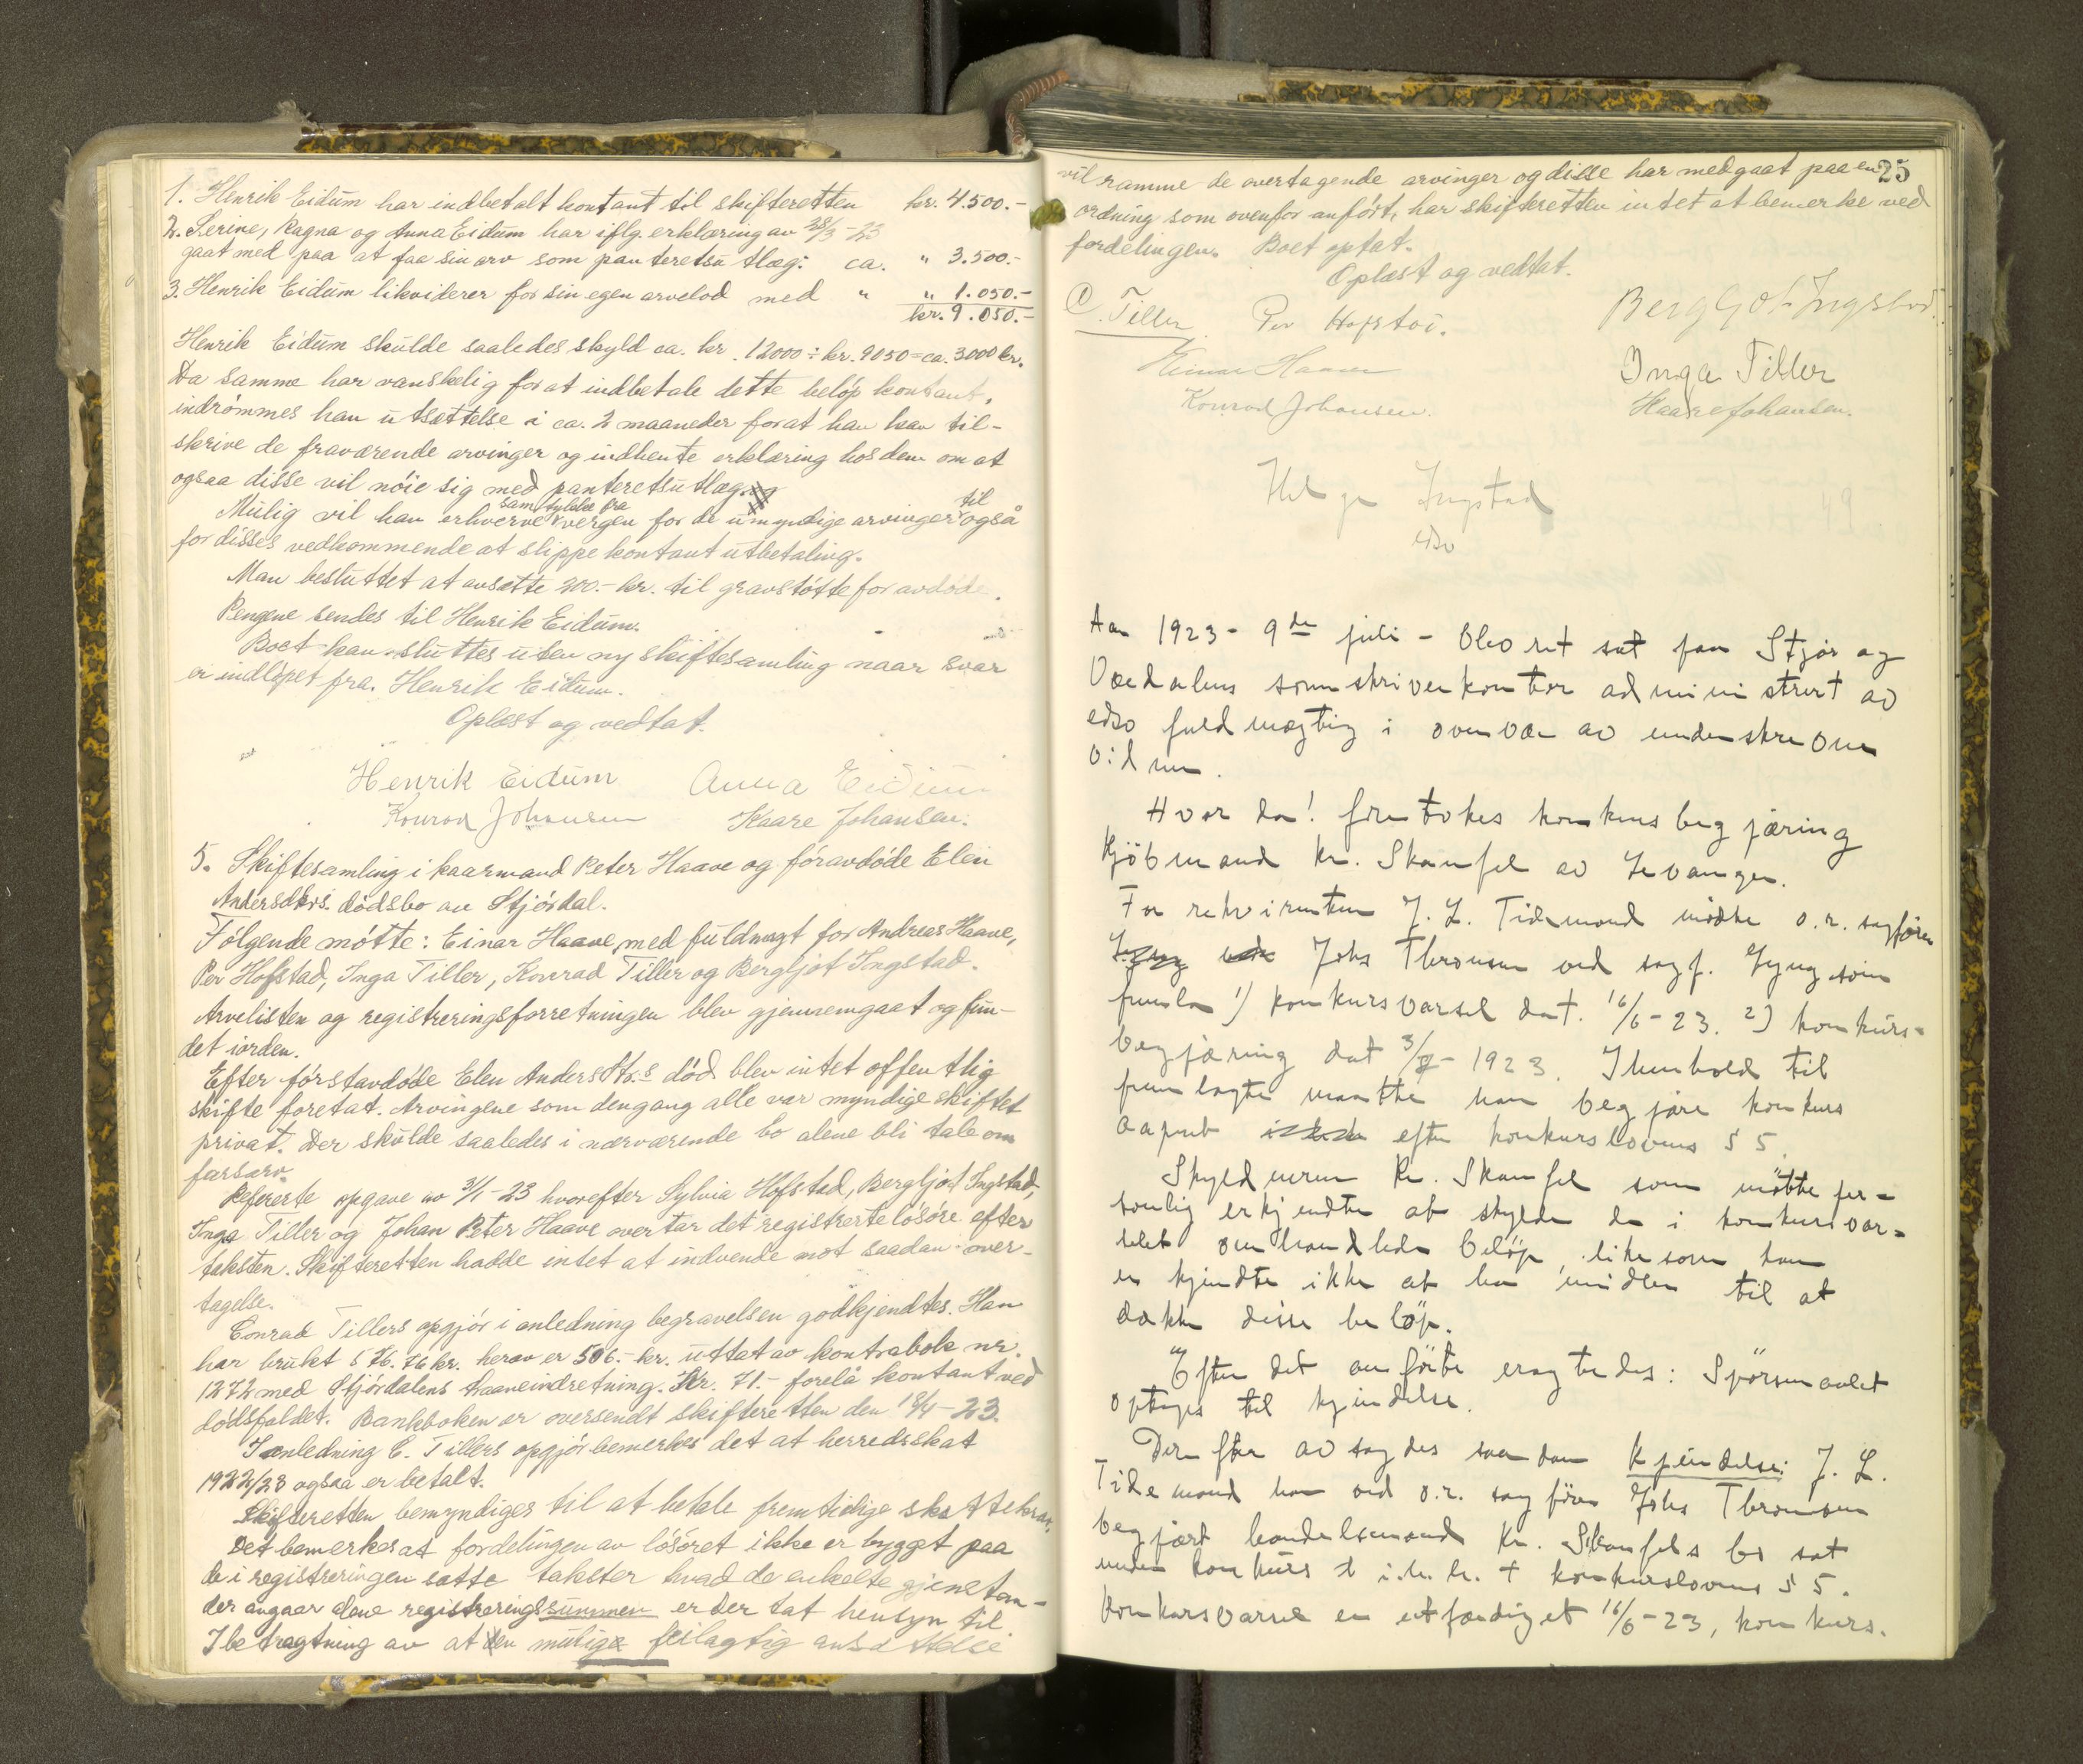 1. Henrik Eidum har indbetalt kontant til skifteretten kr. 4.500.-
2. Serine, Ragna og Anna Eidum har iflg. erklæring av 28/3-23
gaat med paa at faa sin arv som panteretsutlæg: ca. " 3.500.-
3. Henrik Eidum likviderer for sin egen arvelod med " " 1.050.-
kr. 9.050.-
Henrik Eidum skulde saaledes skyld ca. kr. 12000 ÷ kr. 9050 = ca. 3000 kr.
Da samme har vanskelig for at indbetale dette beløp kontant,
indrømmes han utsættelse i ca. 2 maaneder forat han kan til-
skrive de fraværende arvinger og indhente erklæring hos dem om at
ogsaa disse vil nøie sig med panteretsutlæg.
Mulig vil han erhverve samtykke fra vergen for de umyndige arvinger til også
for disses vedkommende at slippe kontant utbetaling.
Man besluttet at avsætte 200.- kr. til gravstøtte for avdøde.
Pengene sendes til Henrik Eidum.
Boet kan sluttes uten ny skiftesamling naar svar
er indløpet fra Henrik Eidum.
Oplæst og vedtat.
Henrik Eidum Anna Eidum
Konrad Johansen Kaare Johansen.
5. Skiftesamling i kaarmand Peter Haave og føravdøde Elen
Andersdtrs. dødsbo av Stjørdal.
Følgende møtte: Einar Haave, med fuldmagt for Andreas Haave,
Per Hofstad, Inga Tiller, Konrad Tiller og Bergljot Ingstad.
Arvelisten og registreringsforretningen blev gjennemgaat og fun-
det iorden.
Efter førstavdøde Elen Andersdtr.s død blev intet offentlig
skifte foretat. Arvingene som dengang alle var myndige skiftet
privat. Der skulde saaledes i nærværende bo alene bli tale om
farsarv.
Refererte opgave av 31/1-23 hvorefter Sylvia Hofstad, Bergljot Ingstad,
Inga Tiller og Johan Peter Haave overtar det registrerte løsøre efter
taksten. Skifteretten hadde intet at indvende mot saadan over-
tagelse.
Conrad Tillers opgjør i anledning begravelsen godkjendtes. Han
har brukt 576.76 kr. herav er 506.- kr. uttat av kontrabok nr.
1272 med Stjørdalens Laaneindretning. Kr. 71.- forelå kontant ved
dødsfaldet. Bankboken er oversendt skifteretten den 18/4-23.
I anledning C. Tillers opgjør bemerkes det at herredsskat
1922/23 ogsaa er betalt.
Skifteretten bemyndiges til at betale fremtidige skattekrav.
Det bemerkes at fordelingen av løsøret ikke er bygget paa
de i registreringen satte takster hvad de enkelte gjenstan-
der angaar alene registreringssummen er der tat hensyn til.
I betragtning av at den mulige feilagtig ansættelse
25
vil ramme de overtagende arvinger og disse har medgaat paa en
ordning som ovenfor anført, har skifteretten intet at bemerke ved
fordelingen. Boet optat.
Oplæst og vedtat.
C. Tiller Per Hofstad. Bergljot Ingstad.
Einar Haave Inga Tiller
Konrad Johansen. Kaare Johansen.
Helge Ingstad
edsv
Aar 1923 - 9de juli - blev ret sat paa Stjør og
Værdalens sorenskriverkontor administrert av
edsv fuldmægtig i overvær av underskrevne
vidner.
Hvor da! foretokes konkursbegjæring
kjøbmand Kr. Skamfel av Levanger.
For rekvirenten J. L. Tidemand møtte o.r. sagfører
Johs Thronsen ved sagf. Lyng som
fremla 1) konkursvarsel dat. 16/6-23. 2) konkurs-
begjæring dat 3/7-1923. I henhold til
fremlagte maatte han begjære konkurs
aapnet efter konkurslovens § 5.
Skyldneren Kr. Skamfel som møtte per-
sonlig erkjendte at skylde de i konkursvar-
slet omhandlede beløp, likesom han
erkjendte ikke at ha midler til at
dække disse beløp.
Efter det anførte eragtedes: Spørsmaalet
optages til kjendelse.
Derefter avsagdes saadan kjendelse: J. L.
Tidemand har ved o.r. sagfører Johs Thronsen
begjært handelsmand Kr. Skamfels bo sat
under konkurs i h. h. t konkurslovens § 5.
Konkursvarsel er utfærdiget 16/6-23, konkurs.